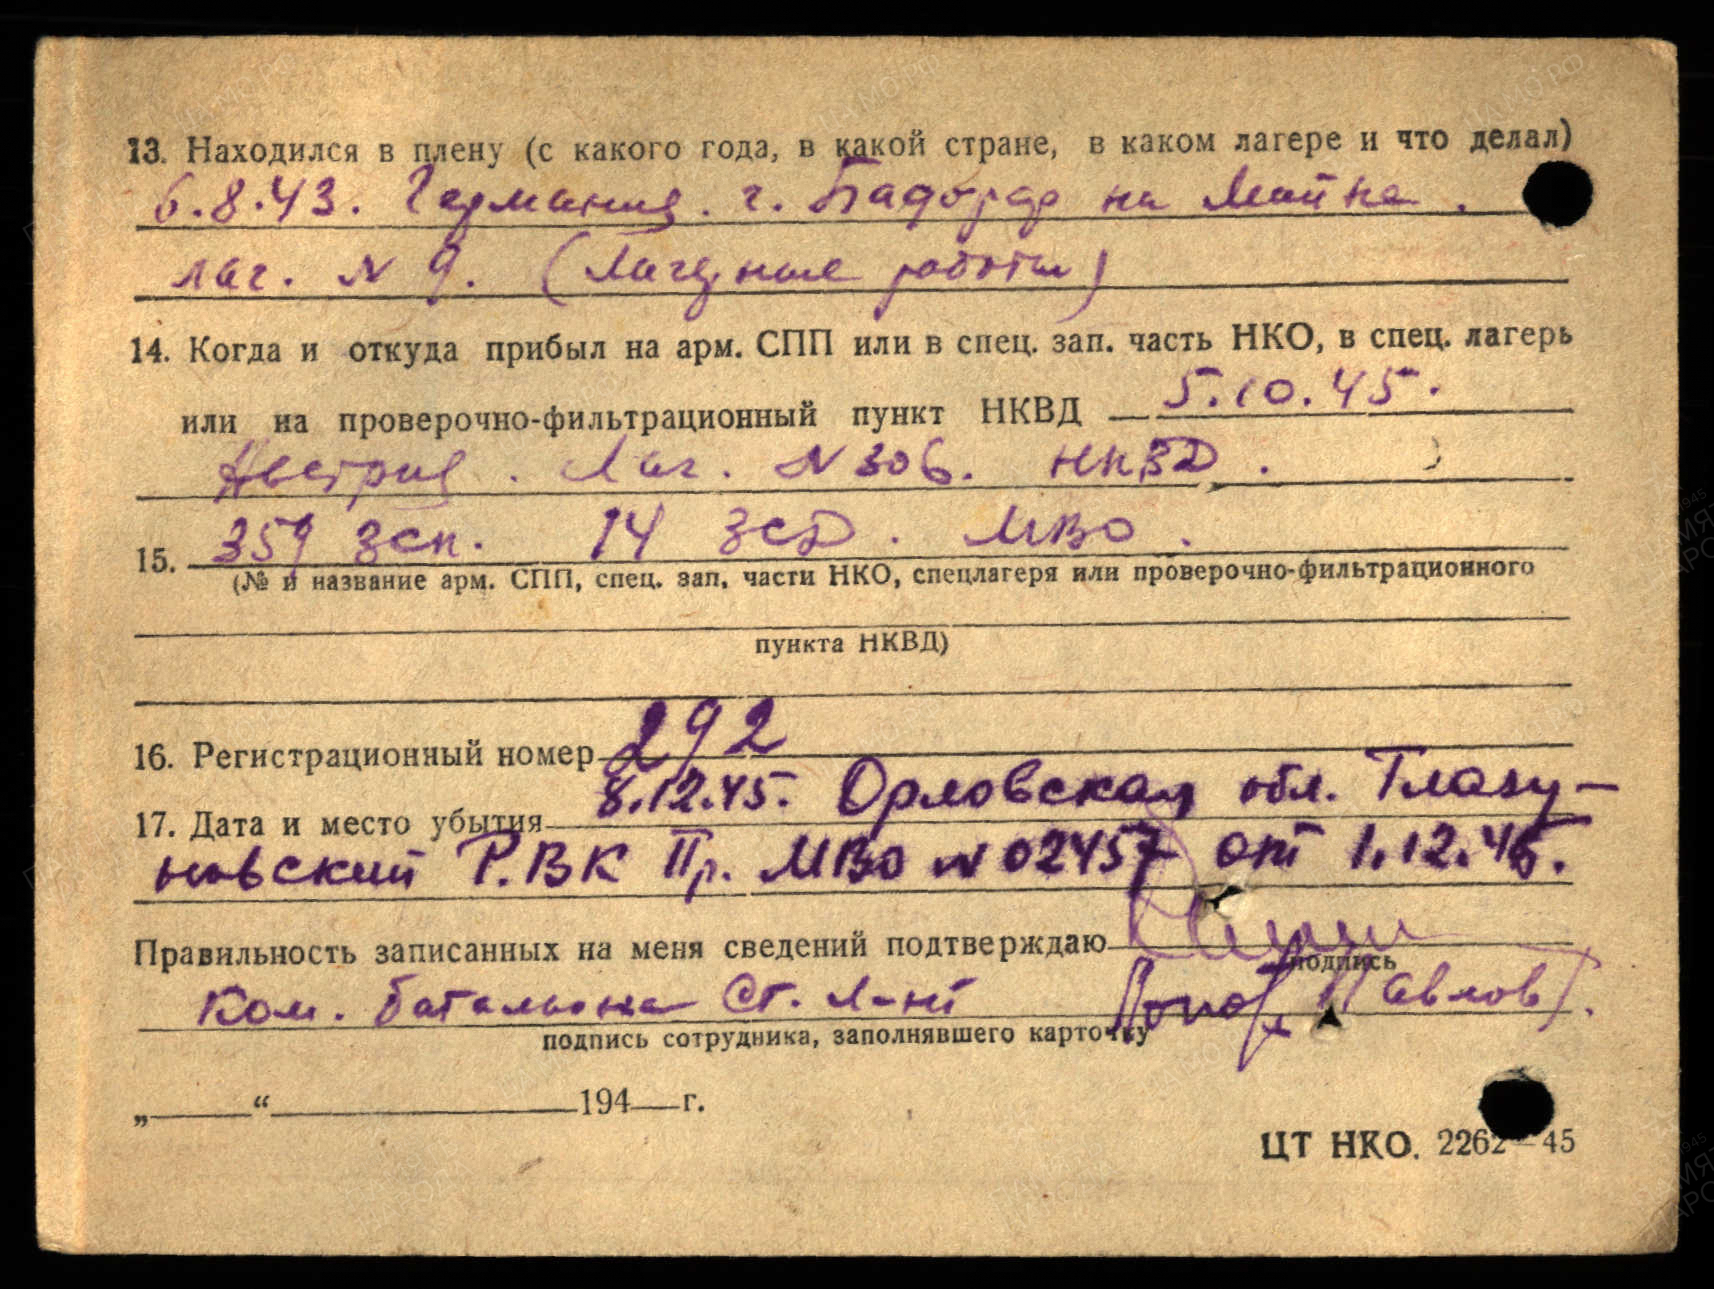 13. Находился в плену (с какого года, в какой стране, в каком лагере и что делал)
6.8.43. Германия. г. на Майне.
лаг. N 9. (Лагерные работы)
14. Когда и откуда прибыл на арм. СПП или в спец. зап. часть НКО, в спец. лагерь
или на проверочно-фильтрационный пункт НКВД 5.10.45.
Австрия. Лаг. N 306. НКВД.
15. 359 зсп. 14 ЗСД. МВО.
(№ и название арм. СПП, спец. зап. части НКО, спецлагеря или проверочно-фильтрационного
пункта НКВД)
16. Регистрационный номер 292
17. Дата и место убытия 8.12.45. Орловская обл. Глазу-
новский Р.ВК Пр. МВО N 02457 от 1.12.45.
Правильность записанных на меня сведений подтверждаю
подпись
Ком. батальона Ст. Л-нт Павлов).
подпись сотрудника, заполнявшего карточку
„ “ 194 г.
ЦТ НКО. 2262—45